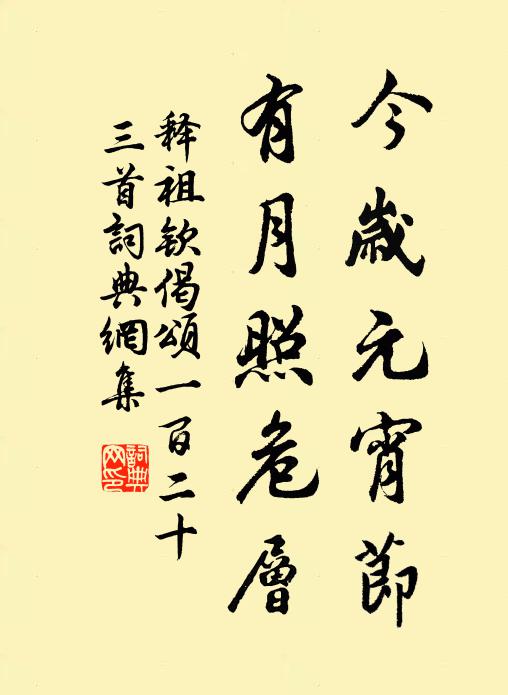 今歲元宵節
有月照危層
释祖欽偈頌一百二十
三首詞典網集
詞典网印